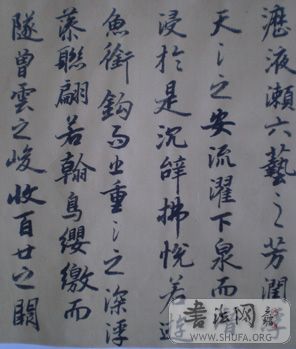 瀝液漱六藝之芳潤
天〻之安流濯下泉而
浸於是沉辭拂悅若遊
魚銜鈎而出重〻之深浮
藻聯翩若翰鳥纓繳而
墜曾雲之峻收百世之闕
書法网
WWW.SHUFA.COM